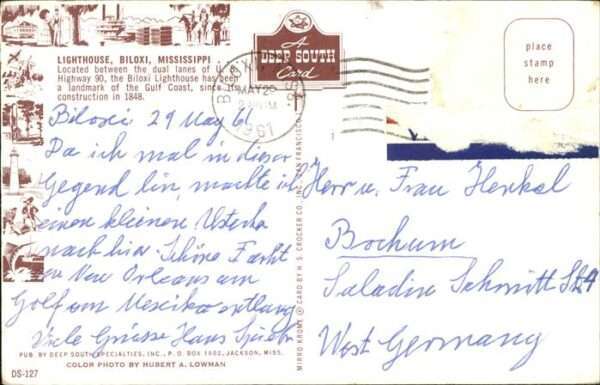 LIGHTHOUSE, BILOXI, MISSISSIPPI
Located between the dual lanes of U.S.
Highway 90, the Biloxi Lighthouse has been
a landmark of the Gulf Coast, since its
construction in 1848.
A
DEEP SOUTH
Card
MAY 29
1961
place
stamp
here
Biloxi 29 May 61
Da ich mal in dieser
Gegend bin, machte ich
einen kleinen
nach hier Schöne Fahrt
New Orleans am
Golf von Mexiko entlang
Viele Grüsse Hans
Herr u. Frau Henkel
Bochum
Saladin Schmitt Str 4
West Germany
MIRRO KROME ® CARD BY H. S. CROCKER CO. INC., SAN FRANCISCO
PUB. BY DEEP SOUTH SPECIALTIES, INC., P.O. BOX 1902, JACKSON, MISS.
COLOR PHOTO BY HUBERT A. LOWMAN
DS-127